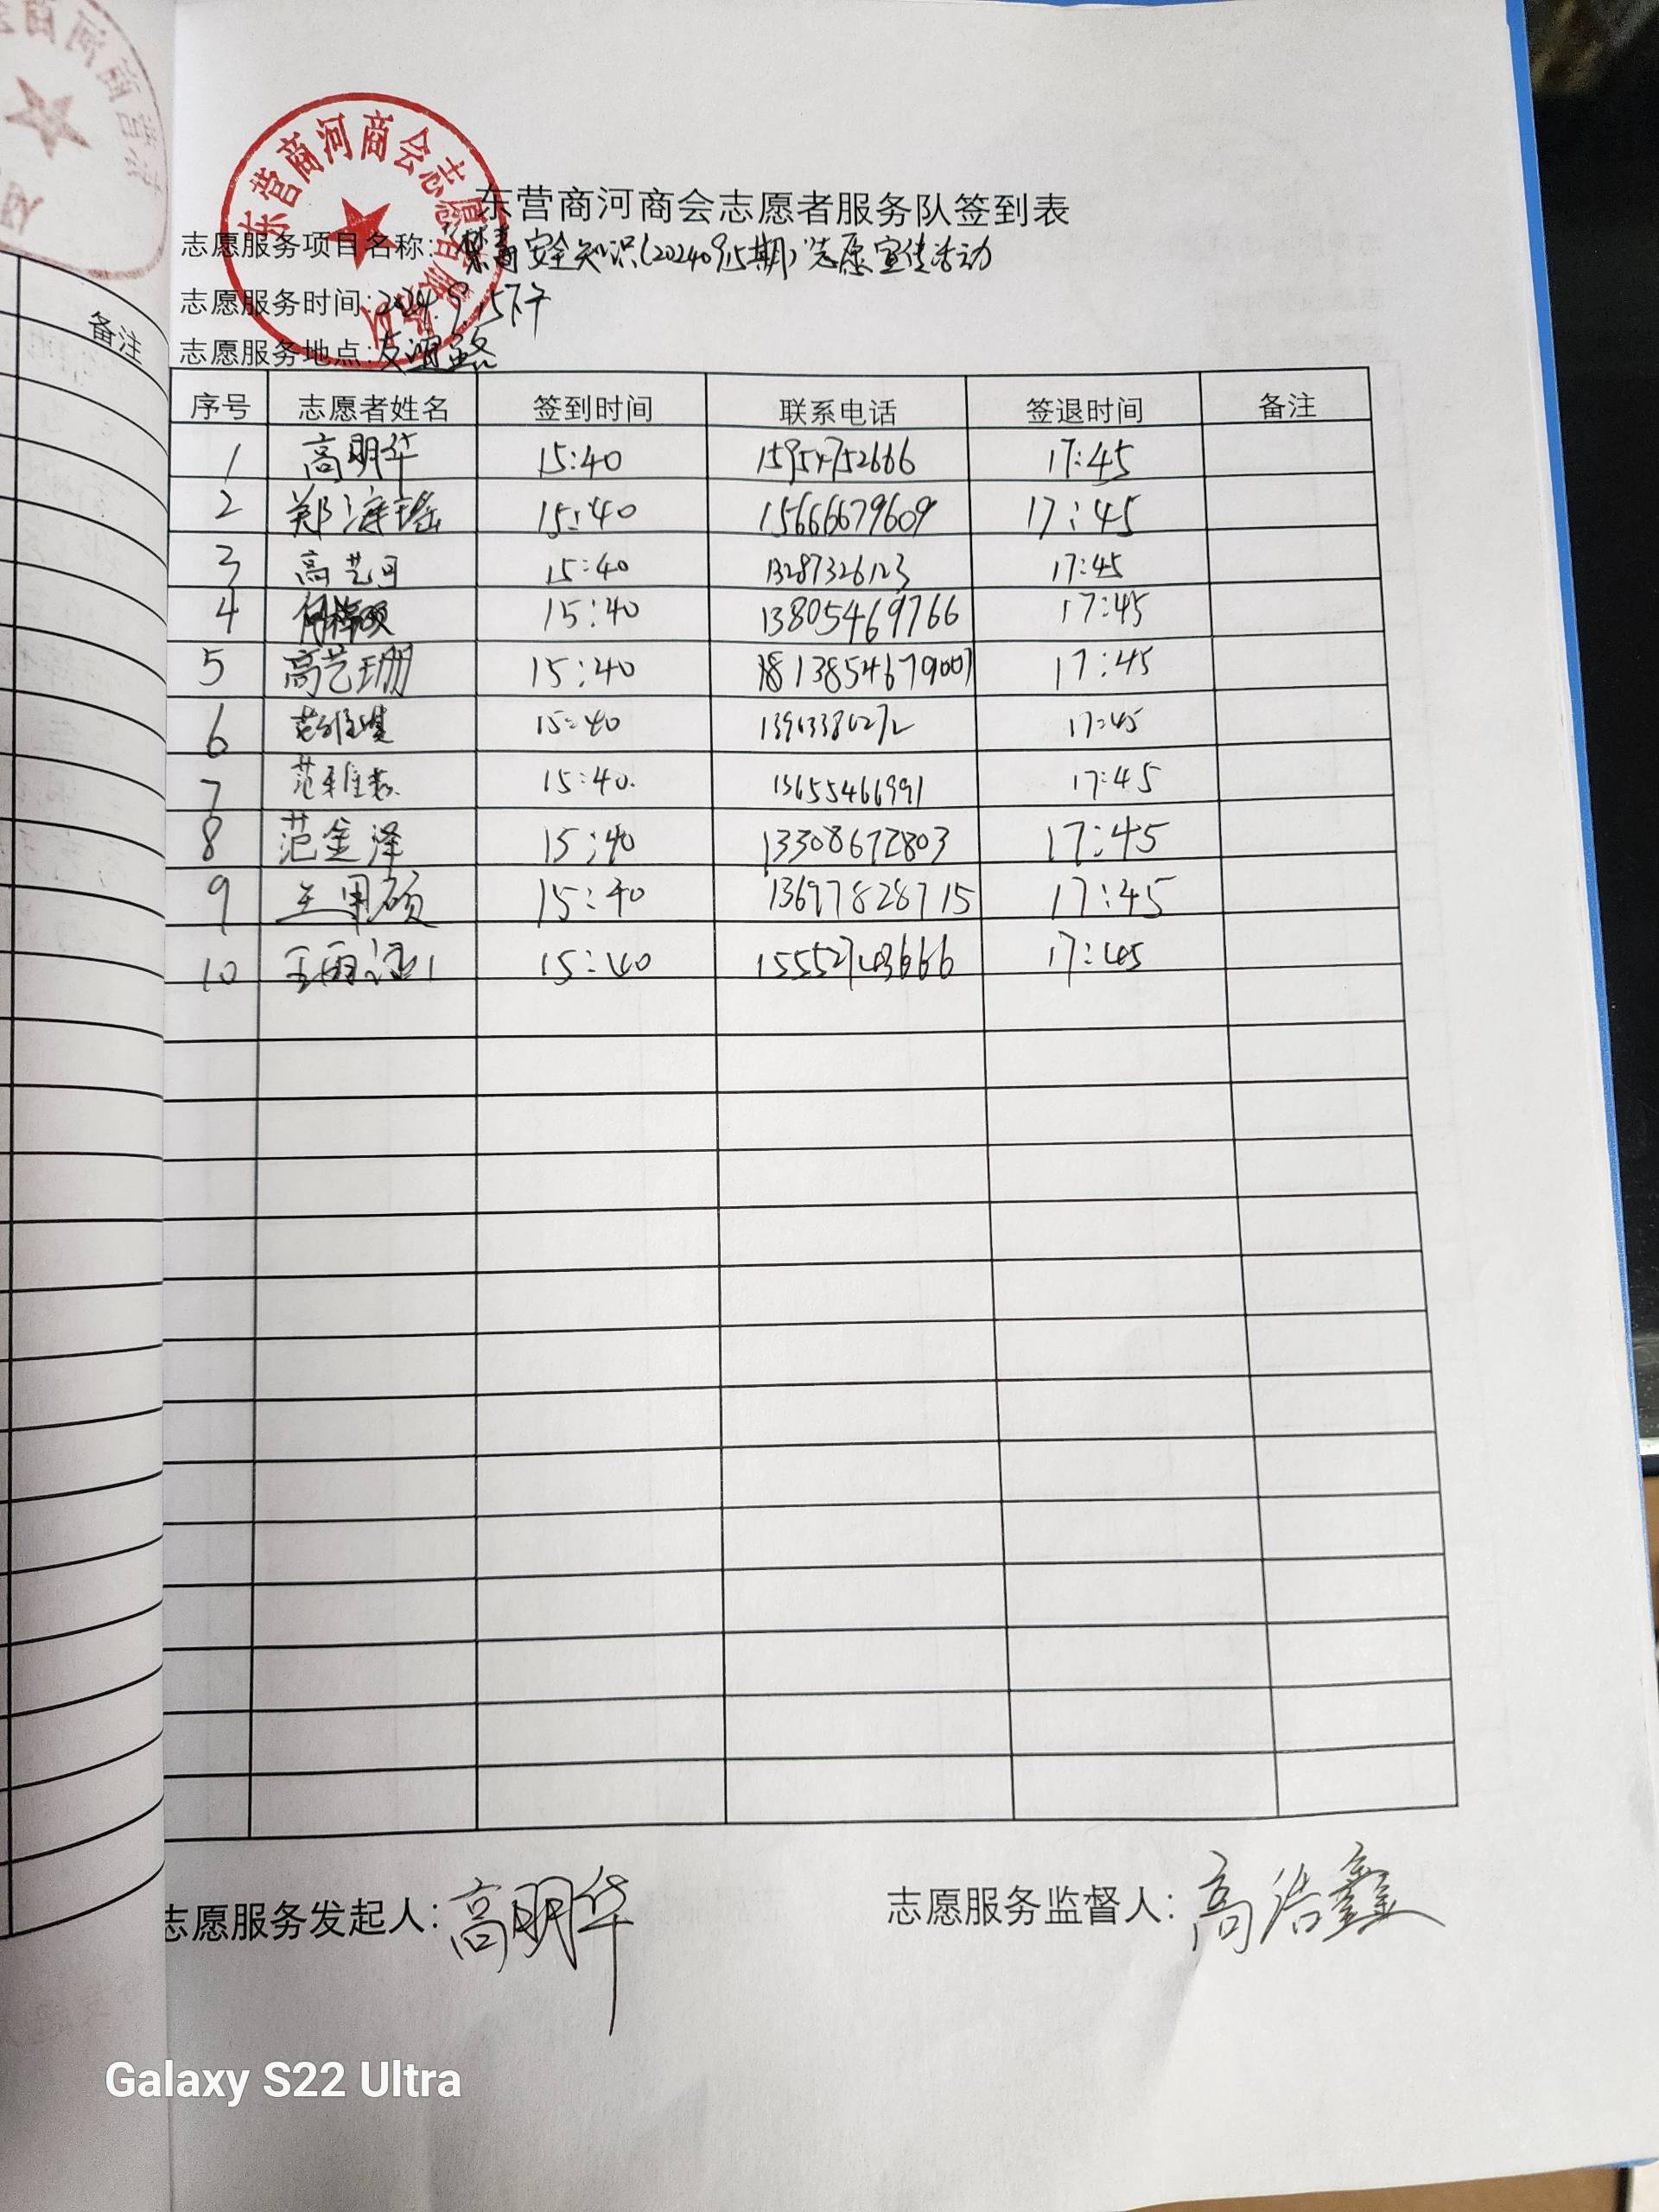 东营商河商会志愿者服务队
东营商河商会志愿者服务队签到表
志愿服务项目名称: 安全知识(20240915期)"志愿宣传活动
志愿服务时间:2024.9.15下午
志愿服务地点:友谊路
备注
序号 志愿者姓名 签到时间 联系电话 签退时间 备注
1 高明华 15:40 15954752666 17:45
2 郑海瑶 15:40 15666679609 17:45
3 高艺可 15:40 13287326123 17:45
4 15:40 13805469766 17:45
5 高艺珊 15:40 17:45
6 15:40 17:45
7 15:40. 13655466991 17:45
8 范金泽 15:40 13308672803 17:45
9 15:40 13697828715 17:45
10 15:40 17:45
志愿服务发起人:高明华 志愿服务监督人:高浩鑫
Galaxy S22 Ultra